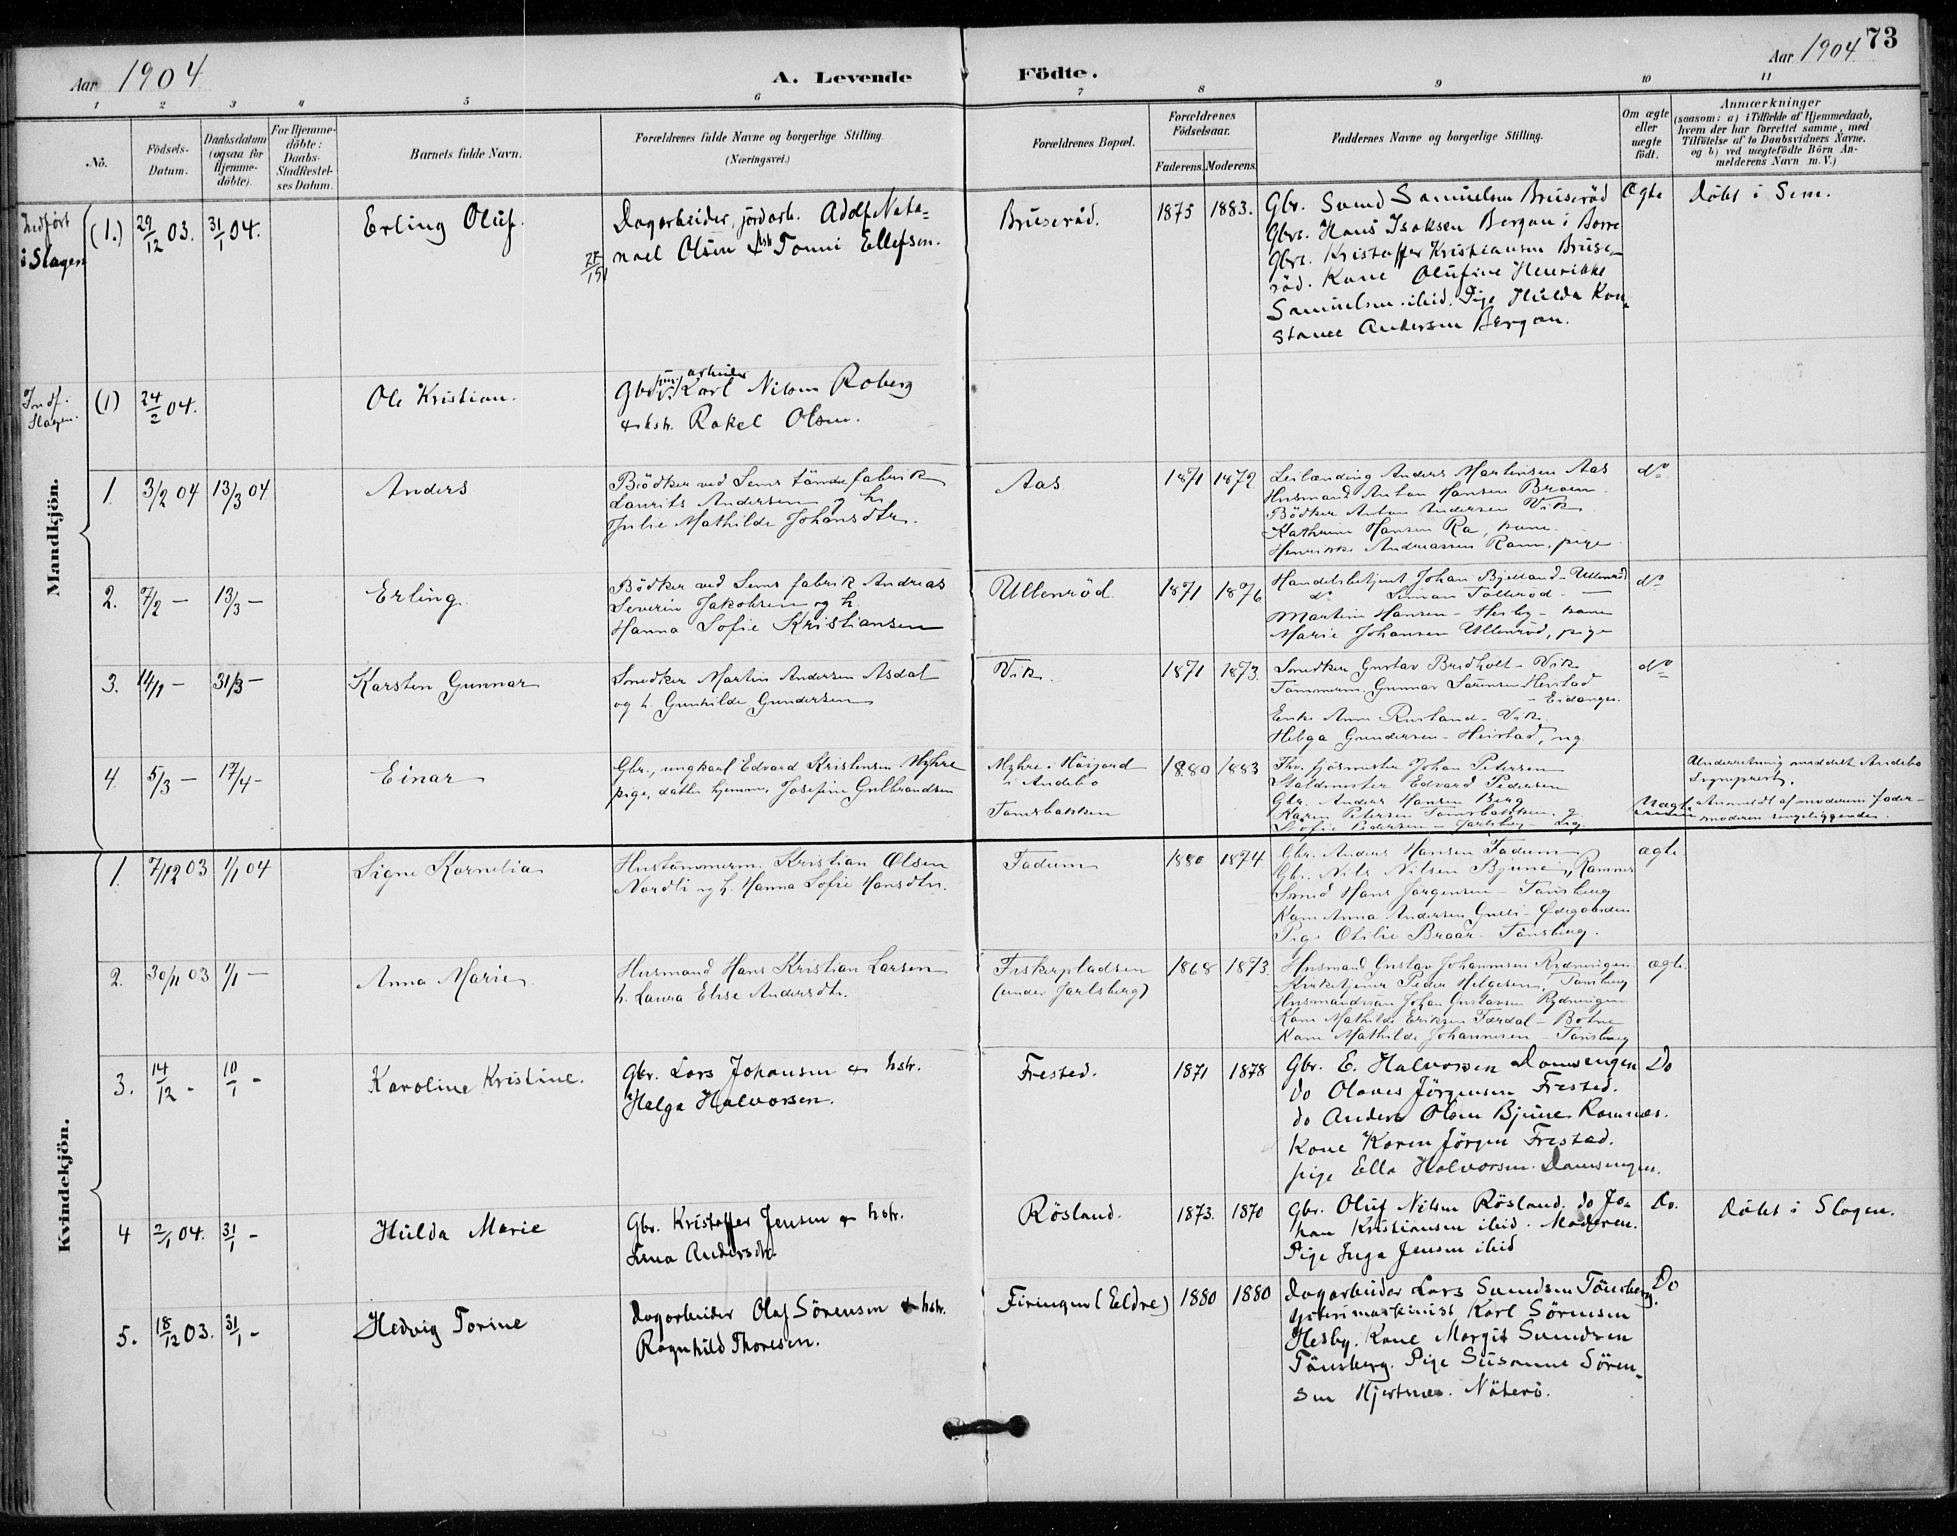 73
Aar 1904
A. Levende Födte.
Aar 1904
1 2 3 4 5 6 7 8 9 10 11
No.
Födsels-Datum.
Daabsdatum (ogsaa for Hjemme-döbte).
For Hjemme-döbte: Daabs-Stadfæstel-ses Datum.
Barnets fulde Navn.
Forældrenes fulde Navne og borgerlige Stilling.
(Næringsvei.)
Forældrenes Bopæl.
Forældrenes Födselsaar.
Faderens. Moderens.
Faddernes Navne og borgerlige Stilling.
Om ægte eller uægte födt.
Anmærkninger
(saasom: a) i Tilfælde af Hjemmedaab,
hvem der har forrettet samme, med
Tilföielse af to Daabsvidners Navne.
og b) ved uægtefödte Börn An-
melderens Navn m. V.)
Mandkjön.
Indført i Slagen
(1.) 29/12 03. 31/1 04. Erling Oluf.
Dagarbeider, jordarb. Adolf Nata-
nael Olsen & hst Tomi Ellefsen.
Bruseröd. 1875 1883.
Gbr. Samuelsen Bruseröd
Gbr. Hans Isaksen Bergan i Borre
Gbr. Kristoffer Kristiansen Bruse-
röd. Kone Olufine Henrikke
Samuelsen ibid. Pige Hulda Kon-
stance Andersen Bergan.
Ægte Döbt i Sem.
Indf. Slagen.
(1) 24/2 04. Ole Kristian.
Gbr. arbeider Karl Nilsen Roberg
& hstr. Rakel Olsen.
1. 3/2 04 13/3 04 Anders
Bödker ved Sems töndefabrik
Laurits Andersen og h.
Julie Mathilde Johansdtr.
Aas 1871 1872
Leilænding Anders Martinsen Aas
Husmand Anton Hansen Braen
Bödker Anton Andersen Vik
Kathrine Hansen Ra, kone
Henrikke Andreassen Ramn, pige
do
2. 7/2 – 13/3 – Erling
Bödker ved Sems fabrik Andreas
Severin Jakobsen og h.
Hanna Sofie Kristiansen
Ullenröd 1871 1876
Handelsbetjent Johan Bjelland – Ullenröd
do Simon Tolleröd –
Martine Hansen – Hesby – kone
Marie Johansen Ullenröd, pige
do
3. 14/1 – 31/3 – Karsten Gunnar
Snedker Martin Andersen Asdal
og h. Gunhilde Gundersen
Vik. 1871 1873.
Snedker Gustav Bredholt – Vik
Tømmerm. Gunnar Sørensen Heistad
– Eidanger
Enke Anne Rusland – Vik
Helga Gundersen – Heistad, ug.
do
4 5/3 – 17/4 – Einar
Gbr., ungkarl Edvard Kristensen Myhre
pige, datter hjemme, Josefine Gulbrandsen
Myhre i Höijord
i Andebo
Tamsbakken
1880 1883
Fhv. fjösmester Johan Pedersen
Staldmester Edvard Pedersen
Gbr. Anders Hansen Berg
Karen Petersen Tamsbakken, g.
Sofie Pedersen – Jarlsberg – Pig.
Uægte
Underretning meddelt Andebo
Sogneprest.
Anmeldt af moderens fader –
moderen sengeliggende.
Kvindekjön.
1. 7/12 03 1/1 04 Signe Kornelia
Hustømmerm. Kristian Olsen
Nordli og h. Hanna Sofie Hansdtr.
Fadum 1880 1874
Gbr. Anders Hansen Fadum
Gbr. Nils Nilsen Bjune, Ramnes
Smed Hans Jørgensen – Tønsberg
Kone Anna Andersen Gulli – Ødegaarden
Pige Otilie Braar – Tönsberg.
ægte
2. 30/11 03 1/1 – Anna Marie
Husmand Hans Kristian Larsen
h. Laura Elise Andersdtr.
Fiskerpladsen
(under Jarlsberg)
1868 1873.
Husmand Gustav Johannesen Rydningen
Kirketjener Peder Helgesen, Tønsberg
Husmandssøn Johan Gustavsen Rydningen
Kone Mathilde Eriksen Tærdal – Botne
Kone Mathilde Johannesen – Tønsberg
ægte
3. 14/12 – 10/1 – Karoline Kristine.
Gbr. Lars Johansen & hstr.
Helga Halvorsen.
Frested. 1871 1878
Gbr. E. Halvorsen Damsengen
do Olaves Jörgensen Frested.
do Anders Olsen Bjune Ramnæs.
Kone Karen Jörgen Frestad.
pige Ella Halvorsen Damsengen.
Do
4 2/1 04. 31/1 – Hulda Marie
Gbr. Kristoffer Jensen & hstr.
Lina Andersdtr.
Rösland. 1873. 1870
Gbr. Oluf Nilsen Rösland. do Jo-
han Kristiansen ibid. Moderen.
Pige Inga Jensen ibid
Do. Döbt i Slagen.
5. 18/12 03. 31/1 – Hedvig Torine
Dagarbeider Olaf Sörensen & hstr.
Ragnhild Thoresen.
Firingen (Eeldre) 1880 1880
Dagarbeider Lars Samdsen Tönsberg.
Karl Sörensen
Hesby. Kone Margit Samdsen
Tönsberg. Pige Susanne Sören-
sen Hjertnæs. Nöterö.
Do